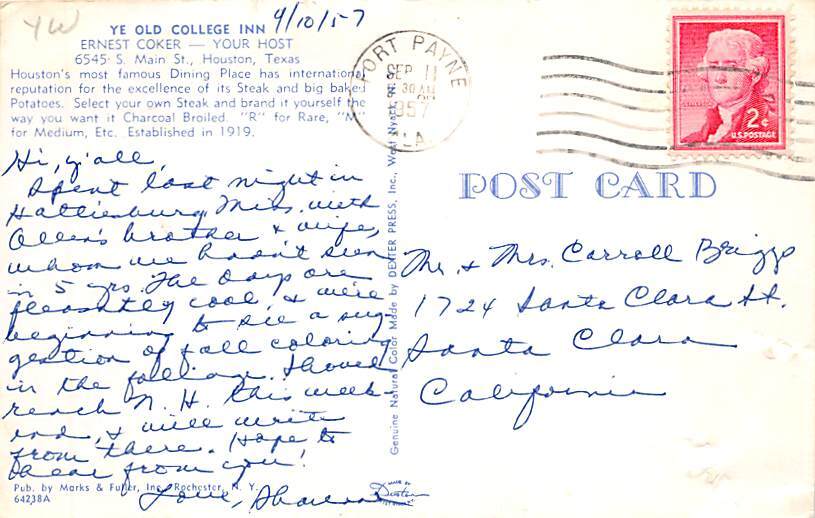 YW
9/10/57
YE OLD COLLEGE INN
ERNEST COKER — YOUR HOST
6545 S. Main St., Houston, Texas
Houston's most famous Dining Place has international
reputation for the excellence of its Steak and big baked
Potatoes. Select your own Steak and brand it yourself the
way you want it Charcoal Broiled. "R" for Rare, "M"
for Medium, Etc. Established in 1919.
Hi, y'all,
Spent last night in
Hattiesburg, Miss. with
brother & wife,
whom we hadn't seen
in 5 yrs. The days are
pleasantly cool, & we're
beginning to see a sug-
gestion of fall coloring
in the foliage. Should
reach N. H. this week-
end, & will write
from there. Hope to
hear from you!
Love,
Pub. by Marks & Fuller, Inc., Rochester, N. Y.
64238A
Genuine Natural Color Made by DEXTER PRESS, Inc., West Nyack, N.Y.
MADE BY
Dexter
FORT PAYNE
SEP 11
30 AM
1957
ALA.
2¢
U.S. POSTAGE
POST CARD
Mr. & Mrs. Carroll Briggs
1724 Santa Clara St.
Santa Clara
California